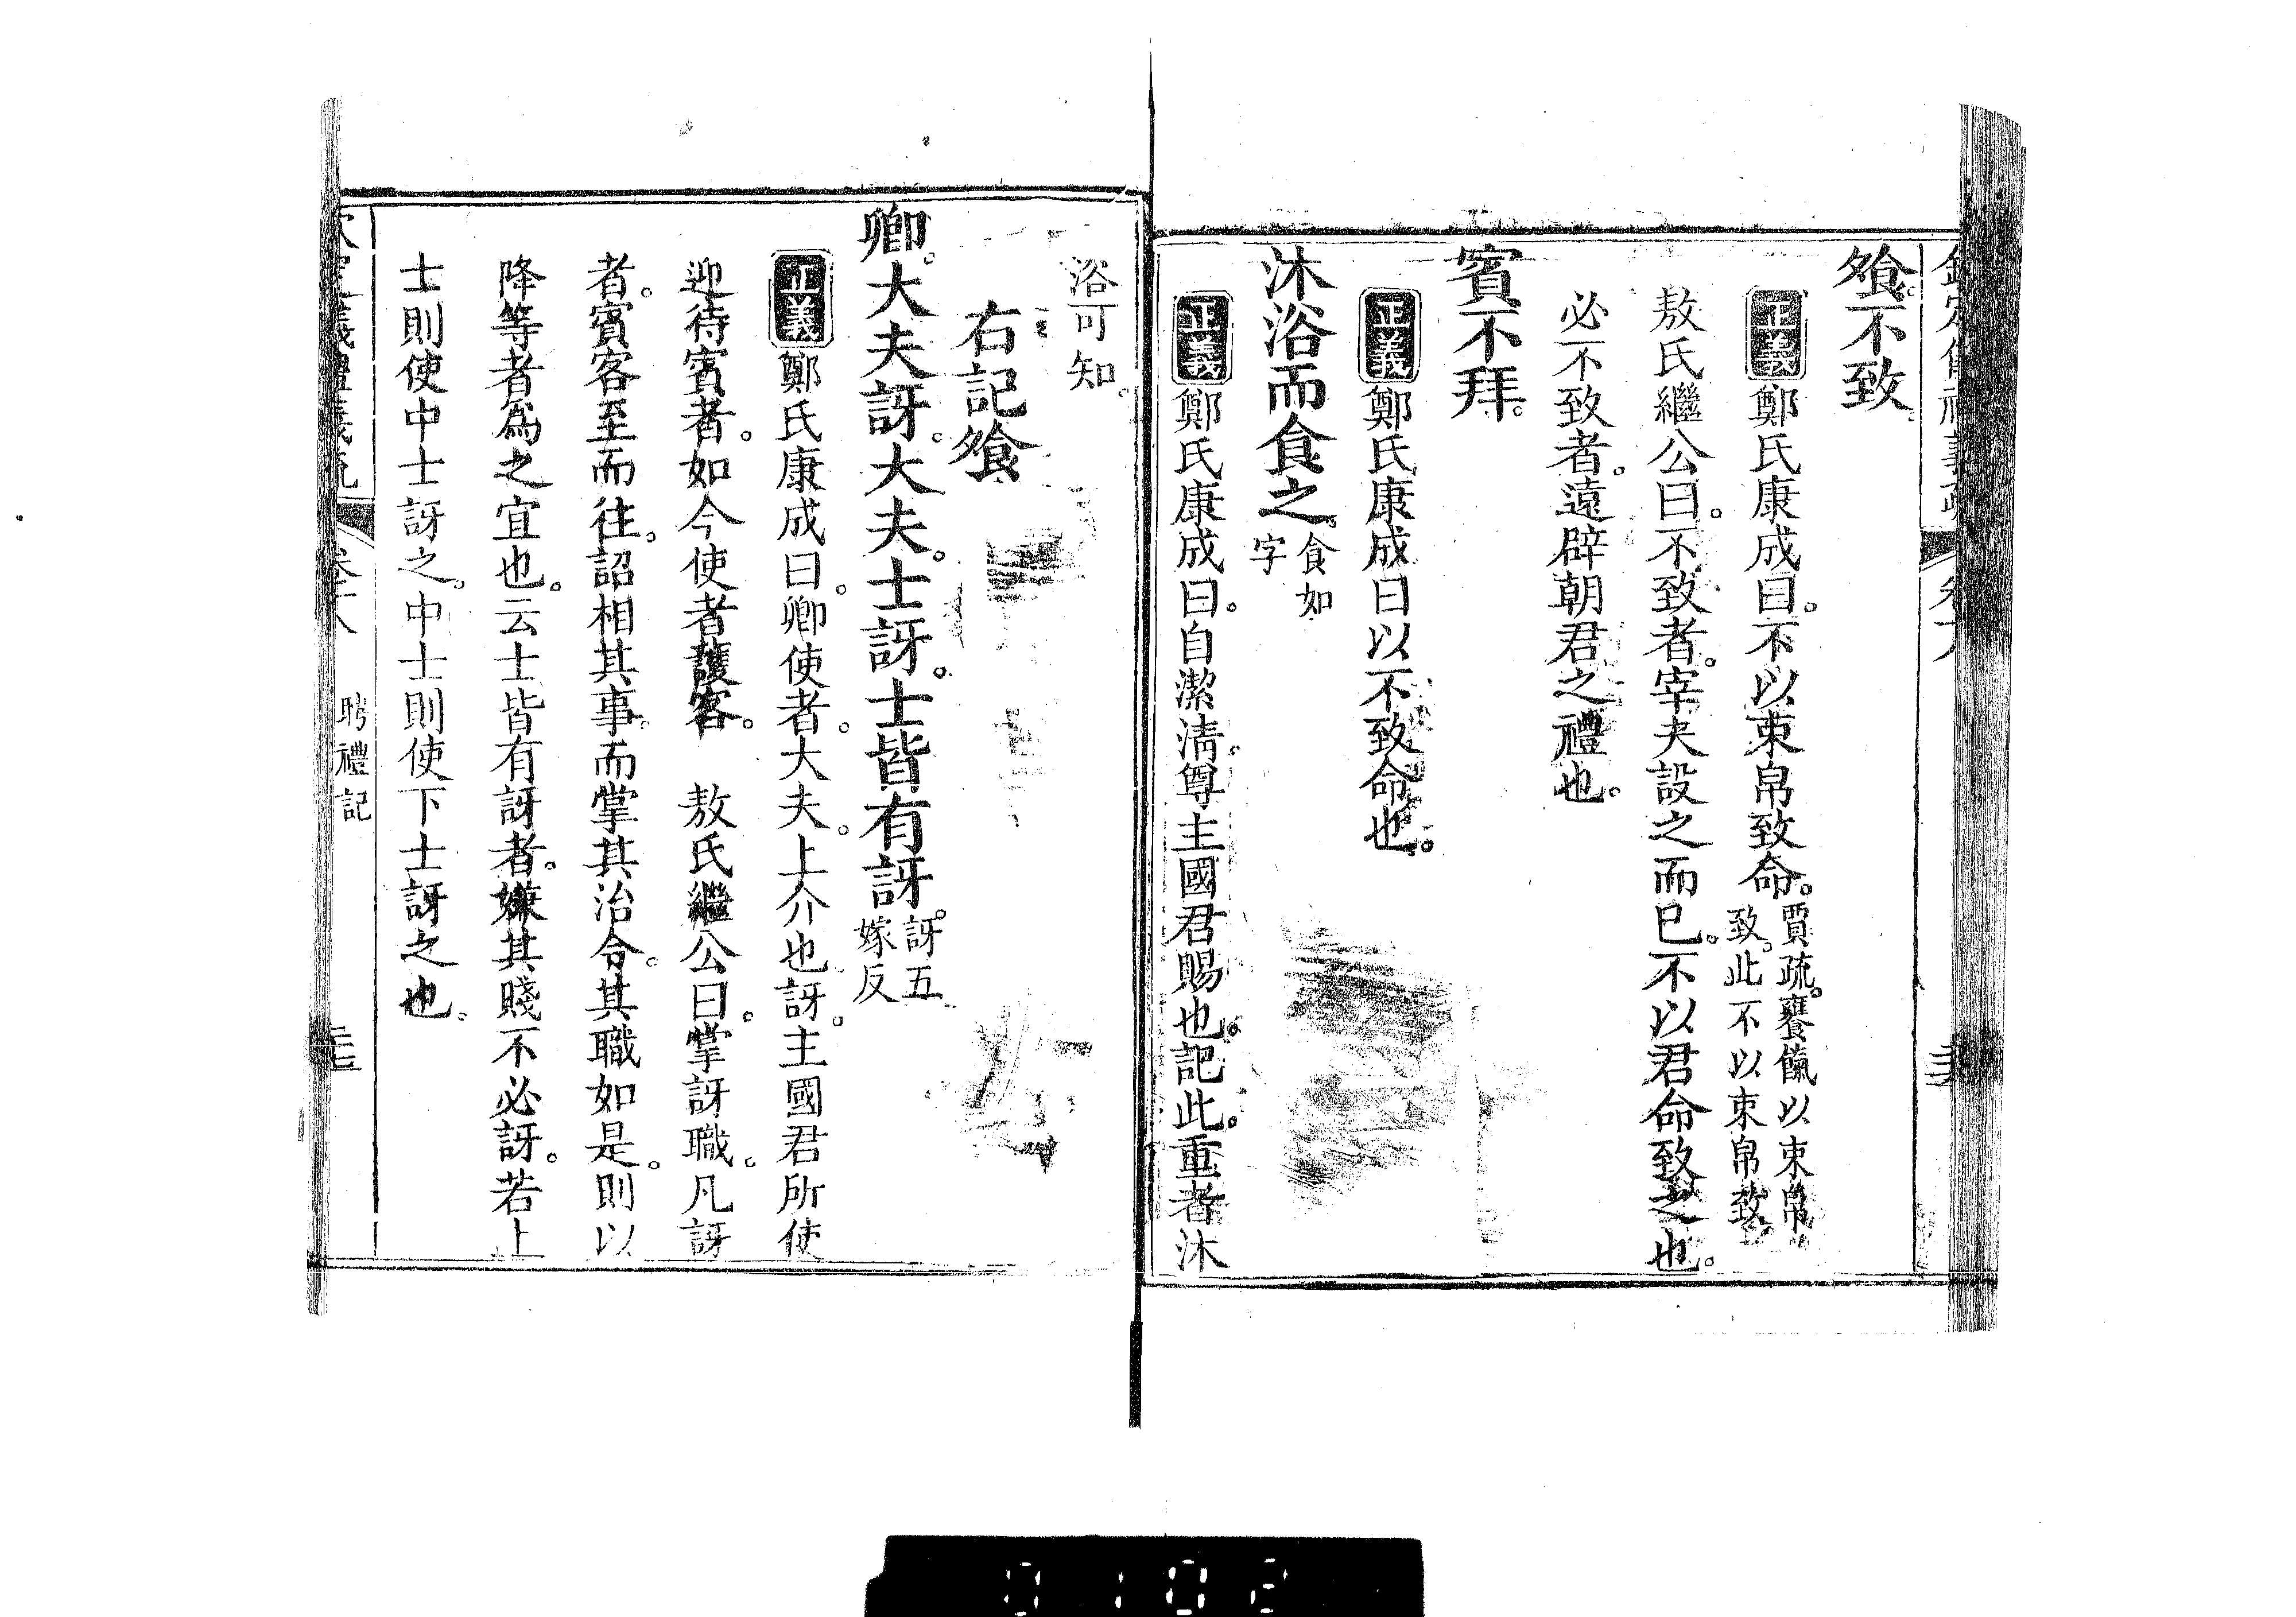 飧。不致。
正義鄭氏康成曰。不以束帛致命。賈疏。饔餼以束帛致。此不以束帛致。
敖氏繼公曰。不致者。宰夫設之而已。不以君命致之也。
必不致者。遠辟朝君之禮也。
賓不拜。
正義鄭氏康成曰以不致命也。
沐浴而食之。食如字
正義鄭氏康成曰。自潔清。尊主國君賜也。記此。重者沐
浴可知。
右記飧
卿。大夫訝。大夫。士訝。士皆有訝。訝五嫁反
正義鄭氏康成曰。卿使者。大夫。上介也訝。主國君所使
迎待賓者。如今使者護客。 敖氏繼公曰。掌訝職。凡訝
者。賓客至而往。詔相其事。而掌其治令。其職如是。則以
降等者為之宜也。云士皆有訝者。嫌其賤不必訝。若上
士則使中士訝之。中士則使下士訝之也。
聘禮記
0102